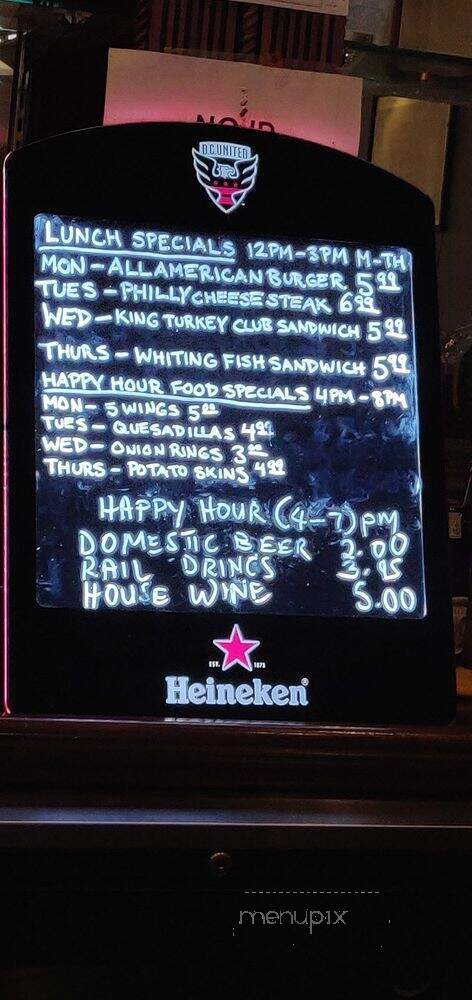 D.C.UNITED
LUNCH SPECIALS 12PM-3PM M-TH
MON - ALL AMERICAN BURGER 5 99
TUES - PHILLY CHEESE STEAK 6 99
WED - KING TURKEY CLUB SANDWICH 5 99
THURS - WHITING FISH SANDWICH 5 99
HAPPY HOUR FOOD SPECIALS 4PM - 8PM
MON - 5 WINGS 5 00
TUES - QUESADILLAS 4 99
WED - ONION RINGS 3 00
THURS - POTATO SKINS 4 99
HAPPY HOUR (4-7) pm
DOMESTIC BEER 2.00
RAIL DRINCS 3.95
HOUSE WINE 5.00
EST. 1873
Heineken®
menupix